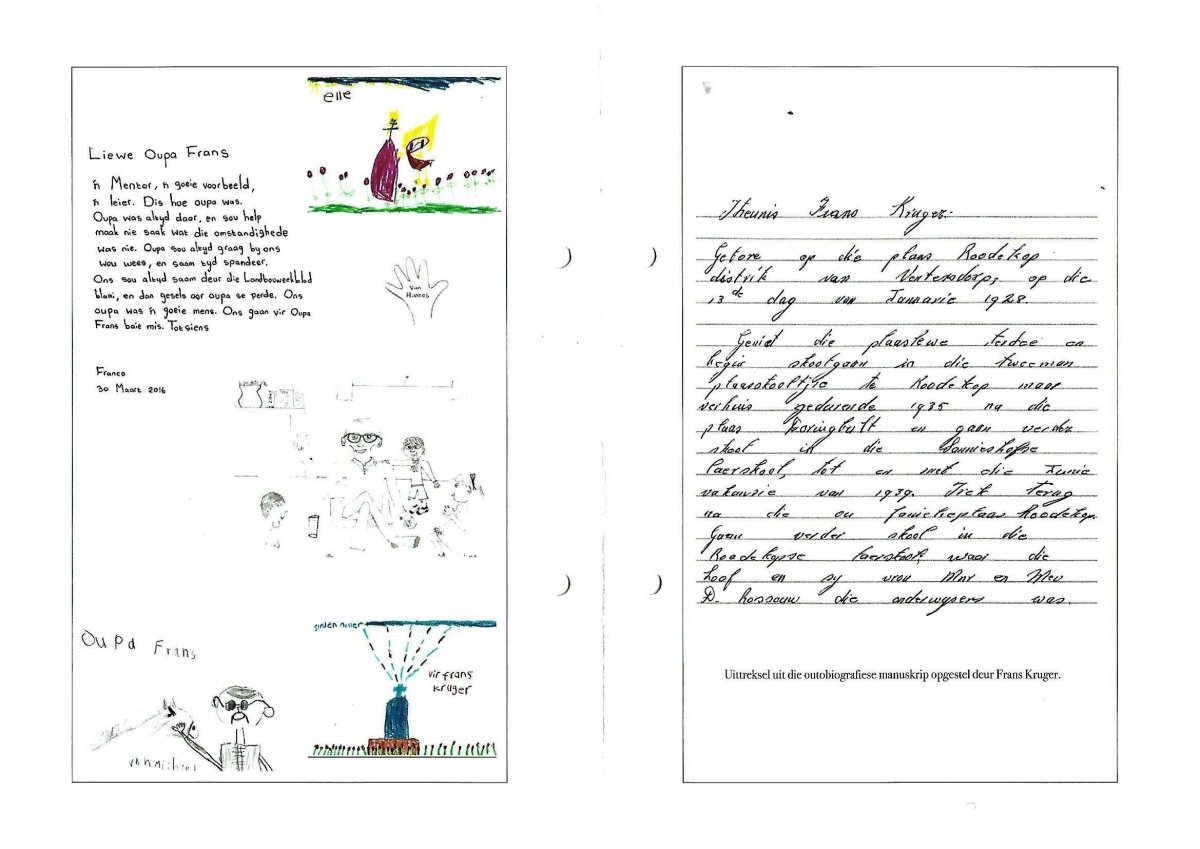 elle
Liewe Oupa Frans
'n Mentor, 'n goeie voorbeeld,
'n leier. Dis hoe oupa was.
Oupa was altyd daar, en sou help
maak nie saak wat die omstandighede
was nie. Oupa sou altyd graag by ons
wou wees, en saam tyd spandeer.
Ons sou altyd saam deur die Landbouweekblad
blaai, en dan gesels oor oupa se perde. Ons
oupa was 'n goeie mens. Ons gaan vir Oupa
Frans baie mis. Totsiens
Franco
30 Maart 2016
Van
Hannes
Oupa Frans
van Michiel
vir frans
kruger
Theunis Frans Kruger.
Gebore op die plaas Roodekop
distrik van Ventersdorp, op die
13de dag van Januarie 1928.
Geniet die plaaslewe terdee en
begin skoolgaan in die tweeman
plaasskooltjie te Roodekop maar
verhuis gedurende 1935 na die
plaas Doringbult en gaan verder
skool in die Sannieshofse
laerskool, tot en met die Junie
vakansie van 1939. Trek terug
na die ou familieplaas Roodekop.
Gaan verder skool in die
Roodekopse laerskool, waar die
hoof en sy vrou Mnr en Mev
D. Rossouw die onderwysers was.
Uittreksel uit die outobiografiese manuskrip opgestel deur Frans Kruger.